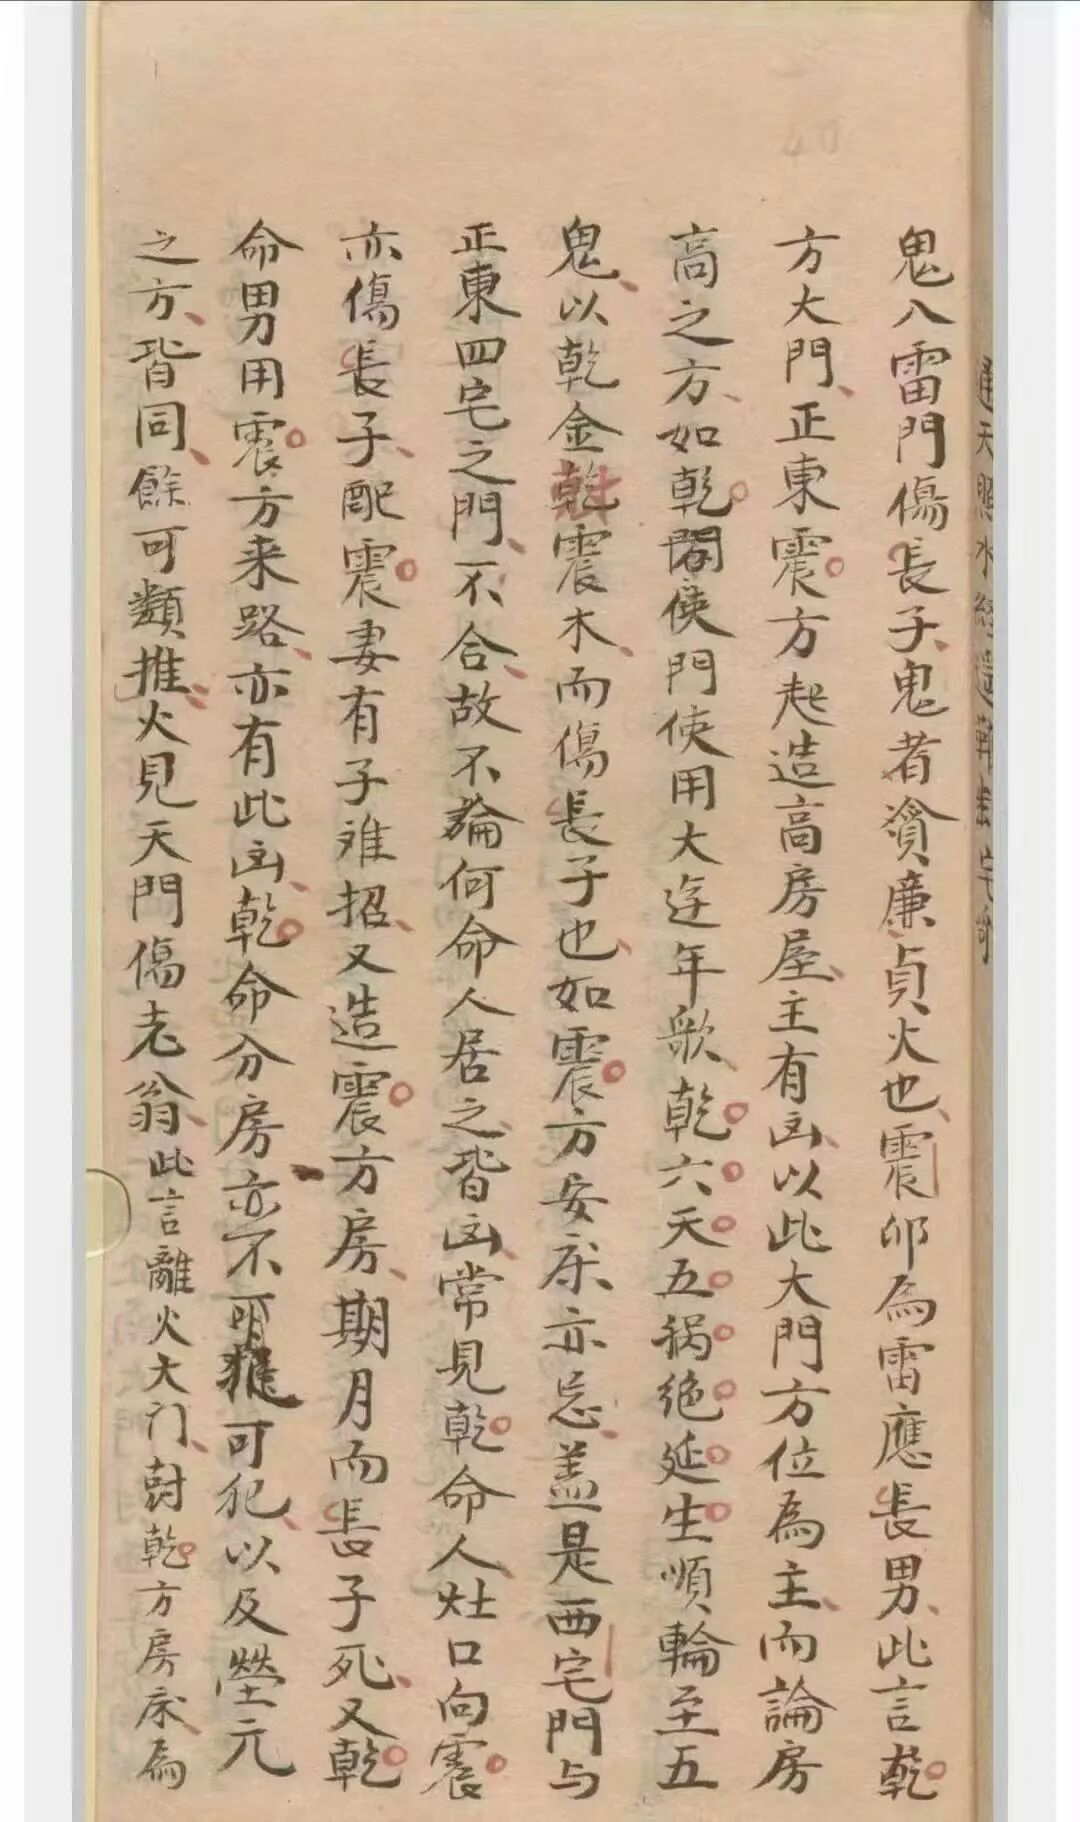 鬼入雷門傷長子鬼者資廉貞火也震卯為雷應長男此言乾
方大門正東震方起造高房屋主有凶以此大門方位為主而論房
高之方如乾開使門使用大迯年歌乾六天五禍絶延生順輪至五
鬼以乾金尅震木而傷長子也如震方安床亦忌盖是西宅門与
正東四宅之門不合故不論何命人居之皆凶常見乾命人灶口向震
亦傷長子配震妻有子难招又造震方房期月而長子死又乾
命男用震方来路亦有此凶乾命分房亦不可犯以及塋元
之方皆同餘可類推火見天門傷老翁此言離火大门對乾方房床為
通天照水經